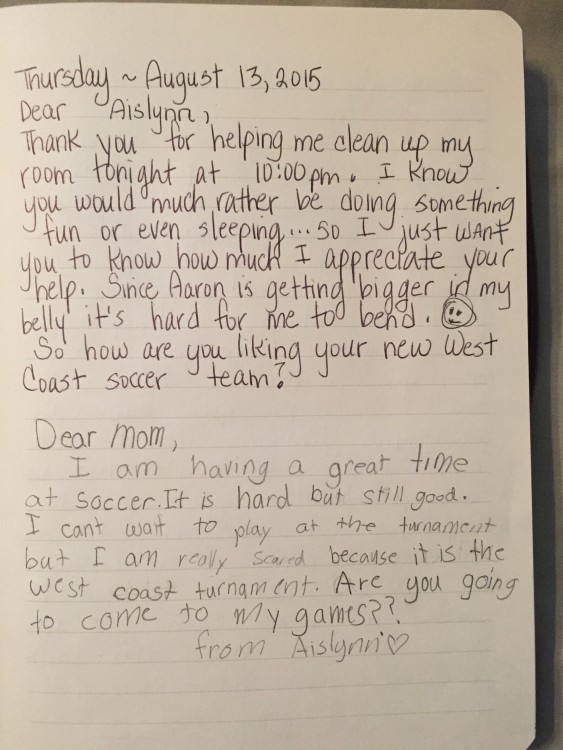 Thursday ~ August 13, 2015
Dear Aislynn,
Thank you for helping me clean up my
room tonight at 10:00pm. I know
you would much rather be doing something
fun or even sleeping... so I just want
you to know how much I appreciate your
help. Since Aaron is getting bigger in my
belly it's hard for me to bend.
So how are you liking your new West
Coast soccer team?
Dear Mom,
I am having a great time
at soccer. It is hard but still good.
I cant wait to play at the turnament
but I am really scared because it is the
west coast turnament. Are you going
to come to my games??
from Aislynn♡